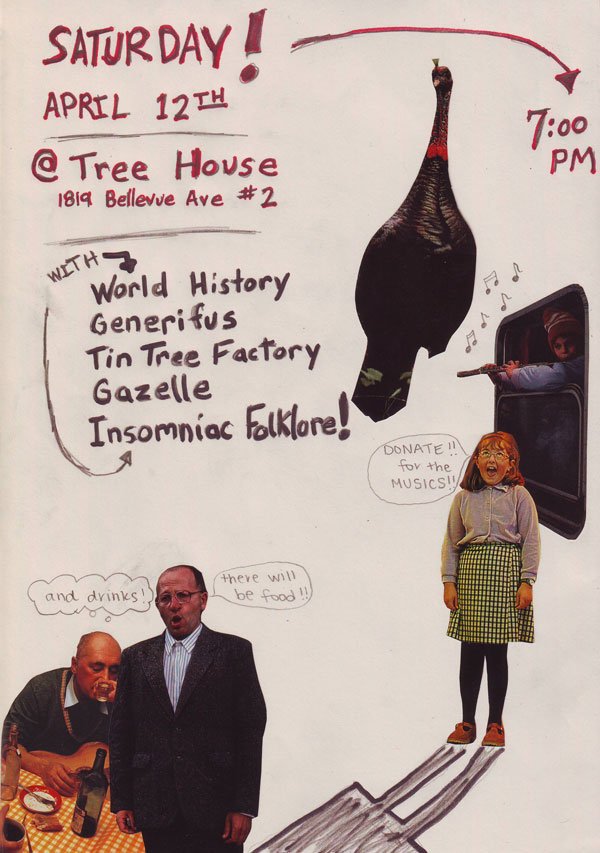 SATURDAY!
APRIL 12TH
7:00
PM
@ Tree House
1819 Bellevue Ave #2
WITH
World History
Generifus
Tin Tree Factory
Gazelle
Insomniac Folklore!
DONATE!!
for the
MUSICS!!
and drinks!
there will
be food!!